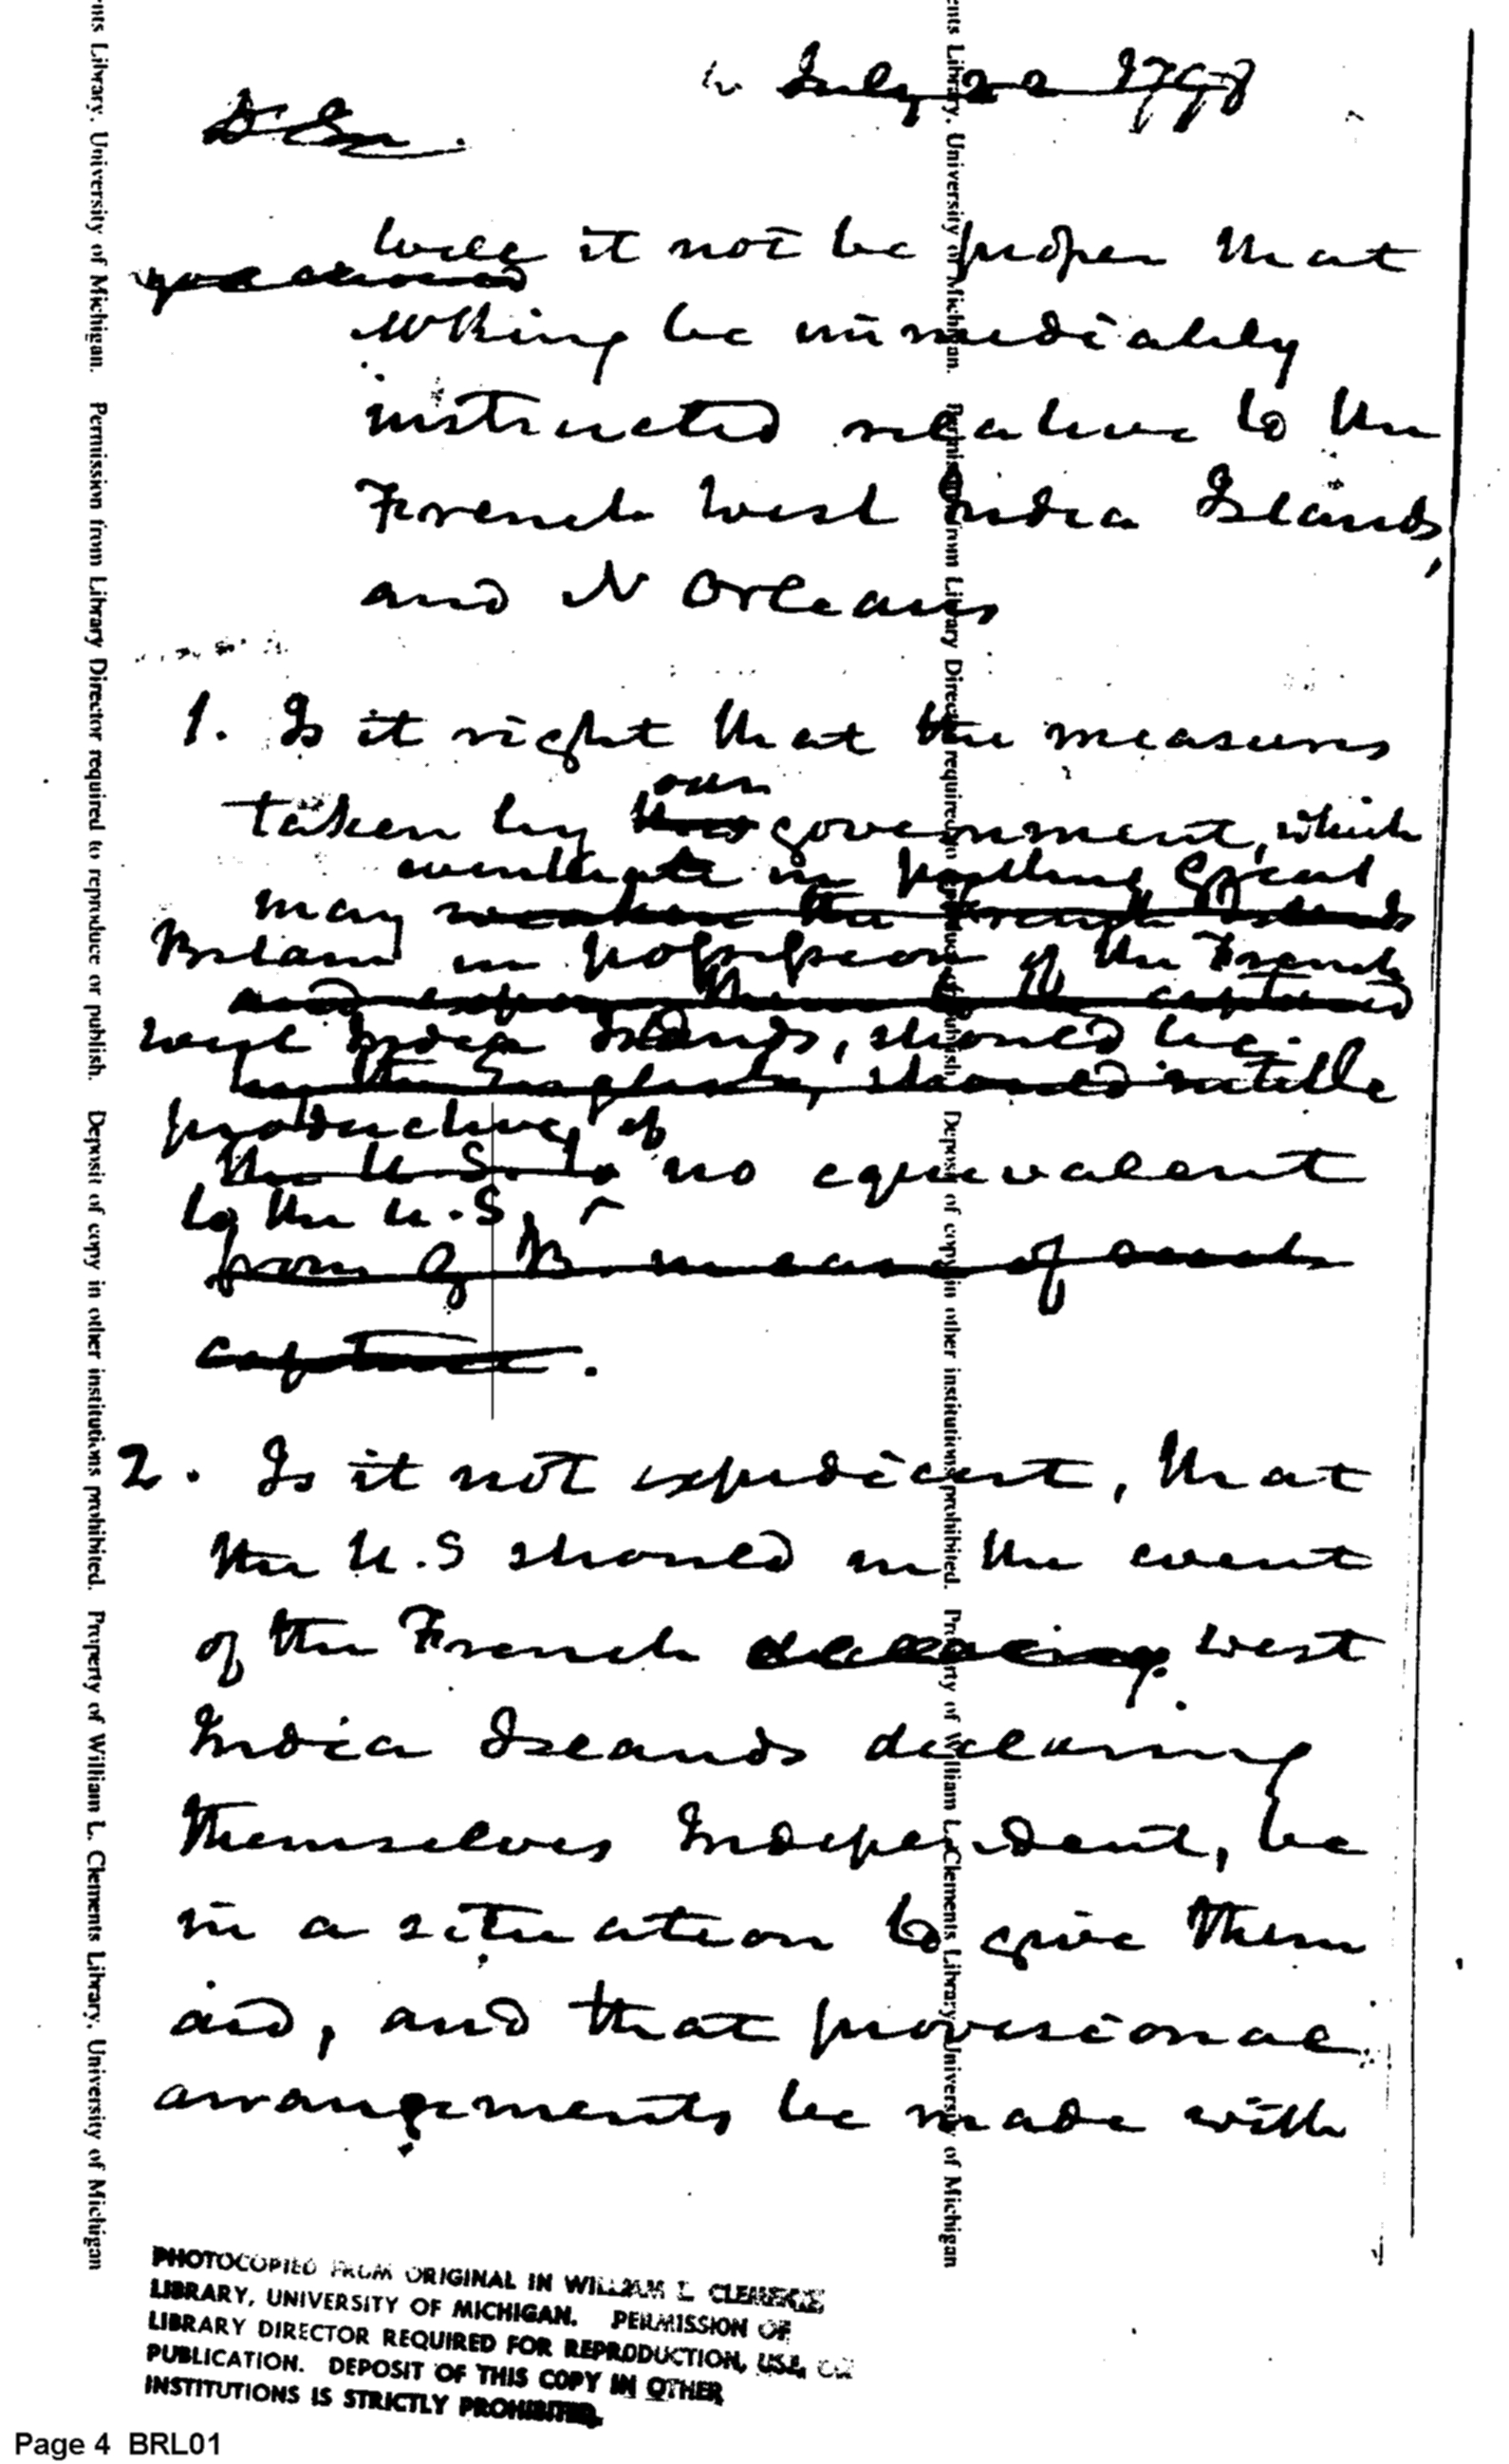 July 22 1798
D Sir.
Will it not be proper that
questions
Mr King be immediately
instructed relative to the
French West India Islands,
and N Orleans
1. Is it right that the measures
our
taken by this government, which
eventuate in putting Great
may weaken the French Islands
Britain in possession of the French
and expose them to be captured
West India Islands, should be
by the English, should entitle
productive of
the U S. to no equivalent
to the U.S.
from G B. means of such
capture.
2. Is it not expedient, that
the U.S should in the event
of the French declaring West
India Islands declaring
themselves Independent, be
in a situation to give them
aid, and that provisional
arrangements be made with
ents Library, University of Michigan. Permission from Library Director required to reproduce or publish. Deposit of copy in other institutions prohibited. Property of William L. Clements Library, University of Michigan
ents Library, University of Michigan. Permission from Library Director required to reproduce or publish. Deposit of copy in other institutions prohibited. Property of William L. Clements Library, University of Michigan
PHOTOCOPIED FROM ORIGINAL IN WILLIAM L. CLEMENTS
LIBRARY, UNIVERSITY OF MICHIGAN. PERMISSION OF
LIBRARY DIRECTOR REQUIRED FOR REPRODUCTION, USE, OR
PUBLICATION. DEPOSIT OF THIS COPY IN OTHER
INSTITUTIONS IS STRICTLY PROHIBITED.
Page 4 BRL01